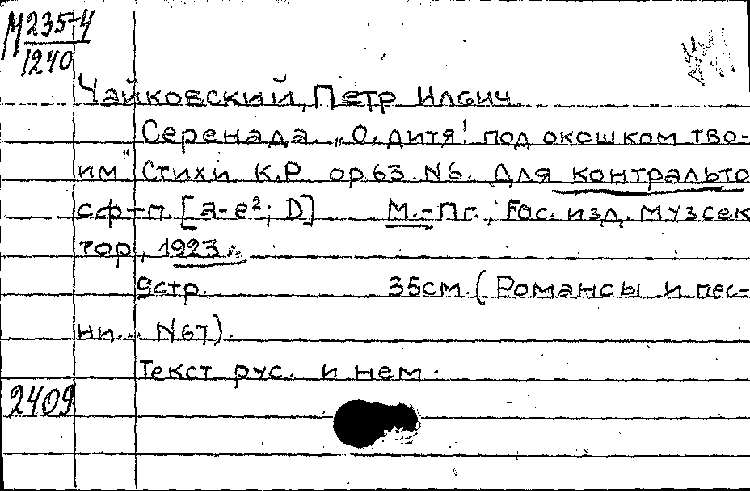 М235-4
1240
Чайковский, Петр Илбич
Серенада „О, дитя! под окошком тво-
им" Стихи К.Р. ор.63 N6. Для контральто
с ф-п. [a-e²; D] М.-Пг., Гос. изд. музсек
тор, 1923 г.
9стр. 35см. (Романсы и пес-
ни... N67).
Текст рус. и нем.
2409